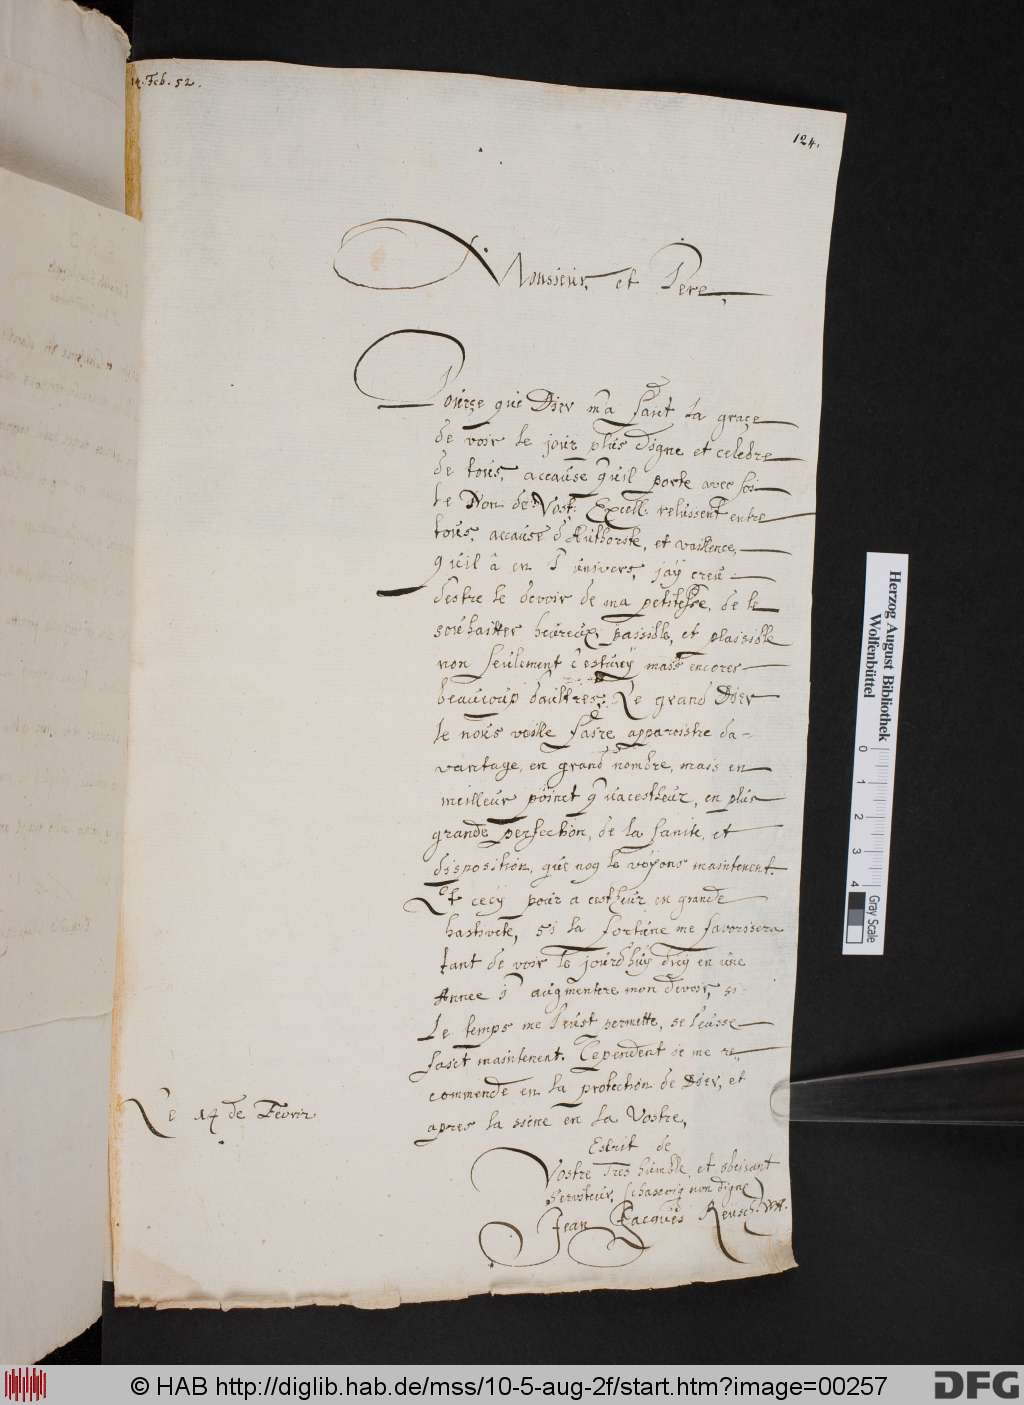 14. Feb. 52.
124.
Monsieur, et Pere,
Pource que Dieu m'a faict la grace
de voir le jour plus digne et celebre
de tous, accause qu'il porte avec soi
le Nom de Vost: Excell: reluissent entre
tous, accause d'Authorite, et vaillence,
qu'il â en l'univers, j'ay creu
d'estre le devoir de ma petitesse, de le
souhaitter heureux, paisible, et plaisible
non seulement c'estuicy mais encores
beaucoup d'aultres, Le grand Dieu
le nous veille faire apparoistre da-
vantage, en grand nombre, mais en
meilleur poinct qu'acestheur, en plus
grande perfection, de la sante, et
disposition, que noy le voyons maintenent.
Et cecy pour a cestheur en grande
hastivete, si la fortune me favorisera
tant de voir le jourdhuy d'icy en une
Annee j'augmentere mon devoir, si
Le temps me l'eust permette, je l'eusse
faict maintenent. Cependent je me re-
commende en la protection de Dieu, et
apres la siene en la Vostre,
Le 14 de Fevrir
Escrit de
Vostre Tres humble, et obeisant
Serviteur, non digne
Jean Jacques Reusch
Herzog August Bibliothek
Wolfenbüttel
0 1 2 3 4
Gray Scale
© HAB http://diglib.hab.de/mss/10-5-aug-2f/start.htm?image=00257
DFG